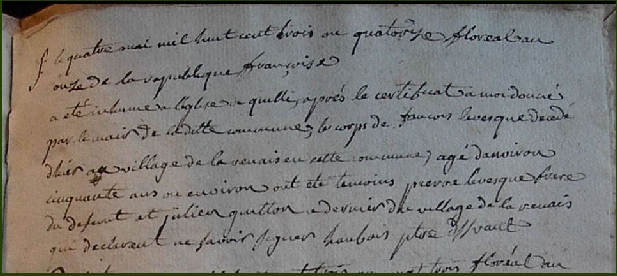 le quatre mai mil huit cent trois ou quatorze floreal an
onze de la republique françoise
a eté inhumé a l'eglise de quilli, apres le certificat a moi donné
par le mair de laditte commune, le corps de françois levesque decedé
d'hier au village de la renais en cette commune, agé danviron
cinquante ans ou environ ont eté temoins pierre levesque frere
du defunt et julien guitton a dernier du village de la renais
qui declarent ne savoir signer haubois ptre dssvant
floréal an